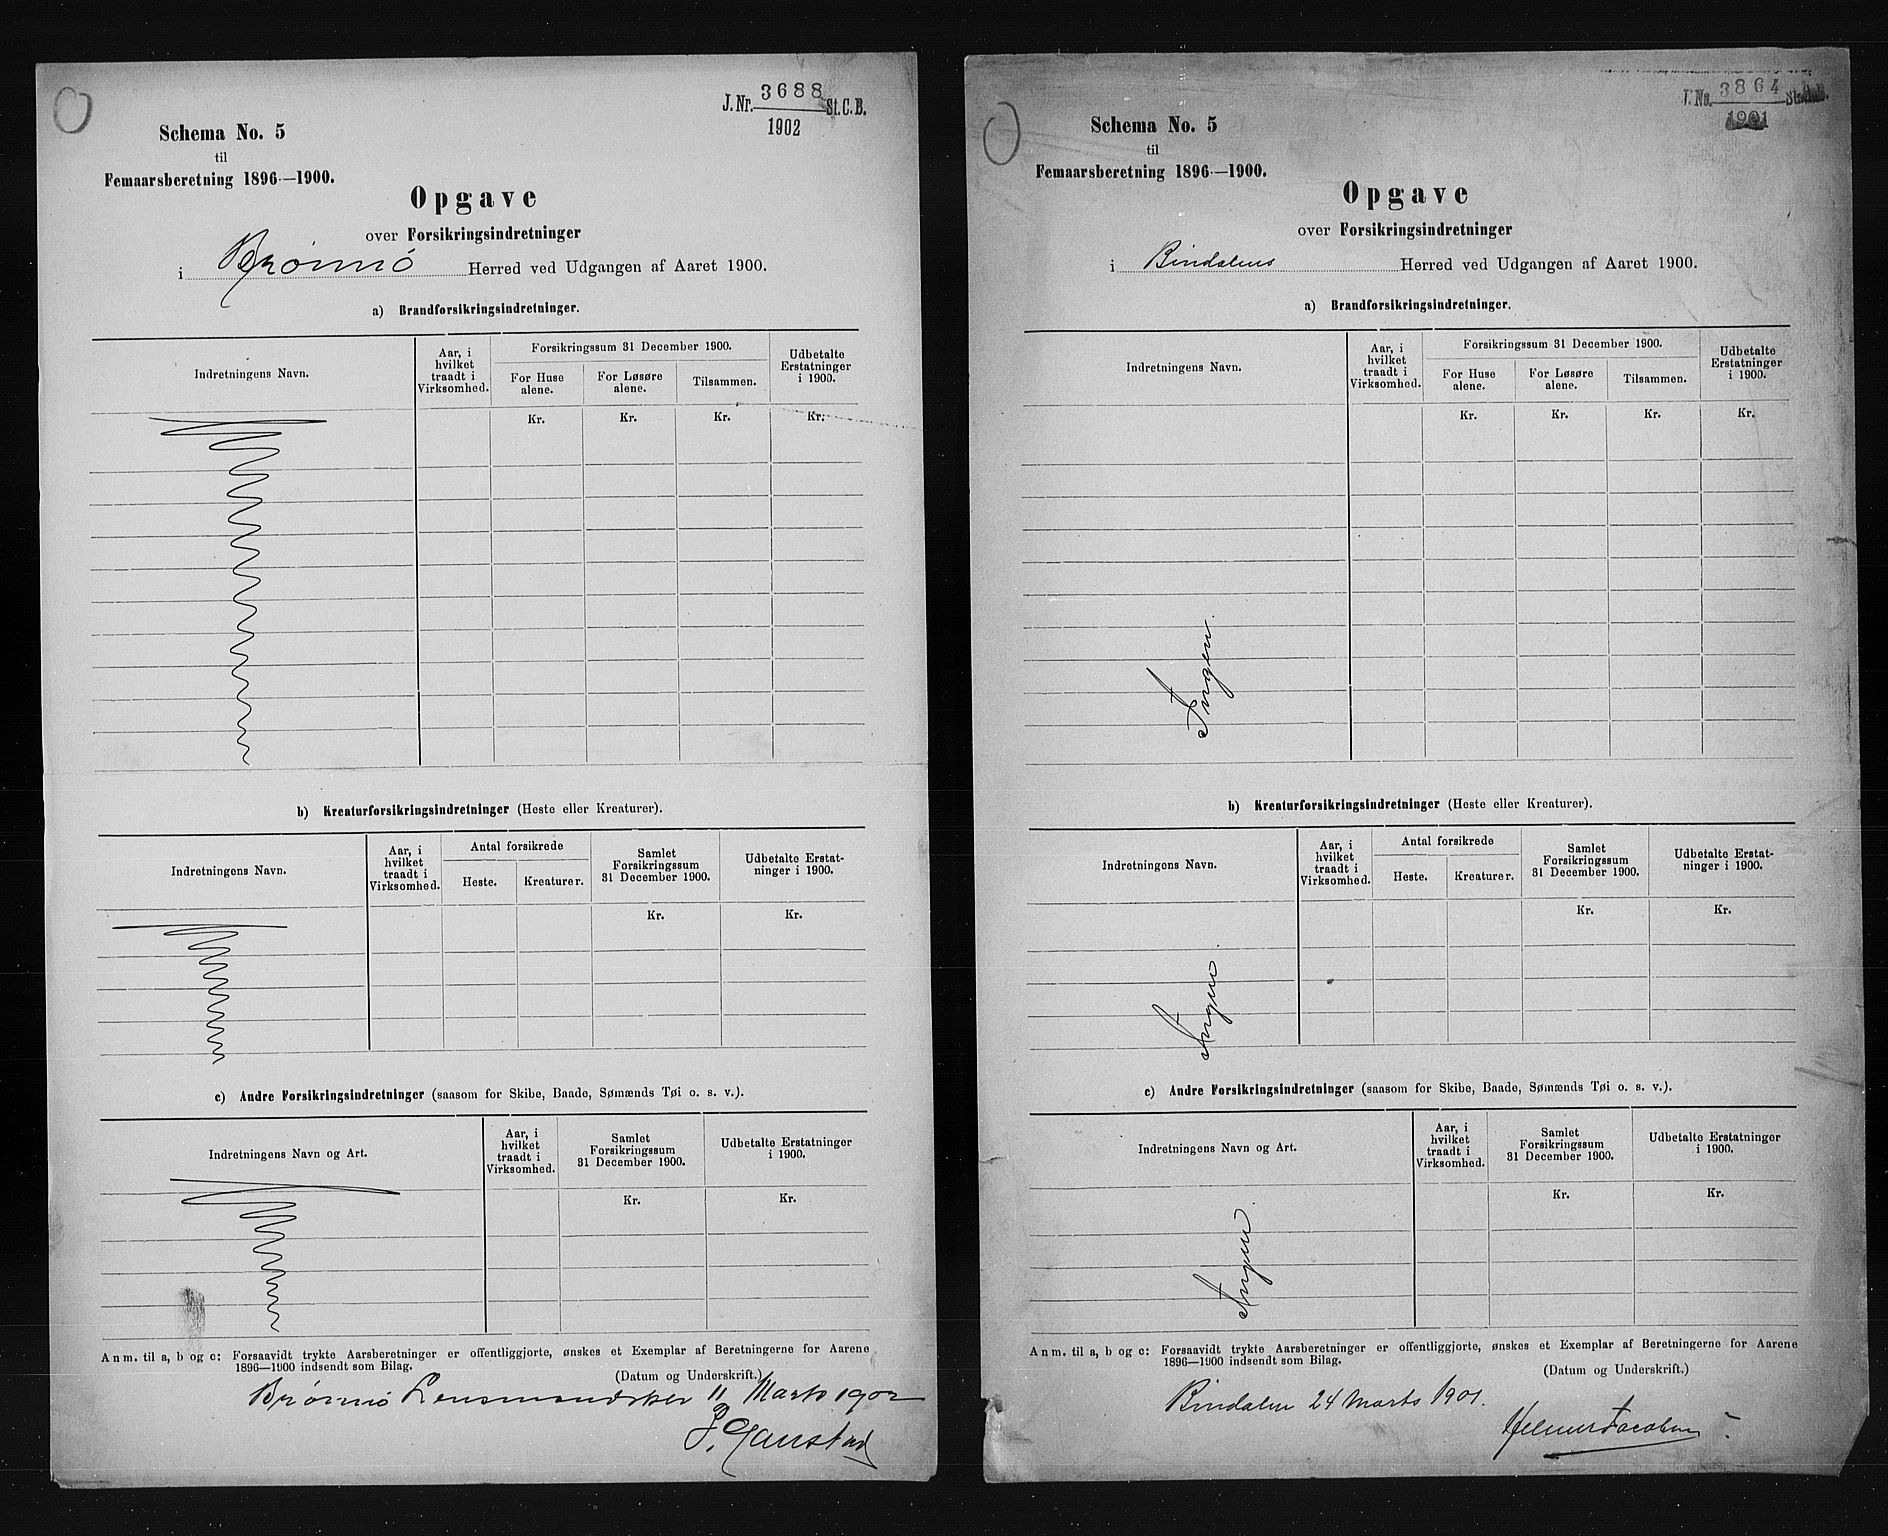 J. Nr. 3688 St. C. B.
1902
Schema No. 5
til
Femaarsberetning 1896—1900.
Opgave
over Forsikringsindretninger
i Brønnø Herred ved Udgangen af Aaret 1900.
a) Brandforsikringsindretninger.
Indretningens Navn.
Aar, i
hvilket
traadt i
Virksomhed.
Forsikringssum 31 December 1900.
For Huse
alene.
For Løsøre
alene.
Tilsammen.
Udbetalte
Erstatninger
i 1900.
Kr. Kr. Kr. Kr.
b) Kreaturforsikringsindretninger (Heste eller Kreaturer).
Indretningens Navn.
Aar, i
hvilket
traadt i
Virksomhed.
Antal forsikrede
Heste. Kreaturer.
Samlet
Forsikringssum
31 December 1900.
Udbetalte Erstat-
ninger i 1900.
Kr. Kr.
c) Andre Forsikringsindretninger (saasom for Skibe, Baade, Sømænds Tøi o. s. v.).
Indretningens Navn og Art.
Aar, i
hvilket
traadt i
Virksomhed.
Samlet
Forsikringssum
31 December 1900.
Udbetalte Erstatninger
i 1900.
Kr. Kr.
Anm. til a, b og c: Forsaavidt trykte Aarsberetninger er offentliggjorte, ønskes et Exemplar af Beretningerne for Aarene
1896—1900 indsendt som Bilag.
(Datum og Underskrift.)
Brønnø 11 Marts 1902
J. No. 3864
1901
Schema No. 5
til
Femaarsberetning 1896—1900.
Opgave
over Forsikringsindretninger
i Bindalens Herred ved Udgangen af Aaret 1900.
a) Brandforsikringsindretninger.
Indretningens Navn.
Aar, i
hvilket
traadt i
Virksomhed.
Forsikringssum 31 December 1900.
For Huse
alene.
For Løsøre
alene.
Tilsammen.
Udbetalte
Erstatninger
i 1900.
Kr. Kr. Kr. Kr.
Ingen
b) Kreaturforsikringsindretninger (Heste eller Kreaturer).
Indretningens Navn.
Aar, i
hvilket
traadt i
Virksomhed.
Antal forsikrede
Heste. Kreaturer.
Samlet
Forsikringssum
31 December 1900.
Udbetalte Erstat-
ninger i 1900.
Kr. Kr.
Ingen
c) Andre Forsikringsindretninger (saasom for Skibe, Baade, Sømænds Tøi o. s. v.).
Indretningens Navn og Art.
Aar, i
hvilket
traadt i
Virksomhed.
Samlet
Forsikringssum
31 December 1900.
Udbetalte Erstatninger
i 1900.
Kr. Kr.
Ingen
Anm. til a, b og c: Forsaavidt trykte Aarsberetninger er offentliggjorte, ønskes et Exemplar af Beretningerne for Aarene
1896—1900 indsendt som Bilag.
(Datum og Underskrift.)
Bindalen 24 Marts 1901.
Helmer Jacobsen